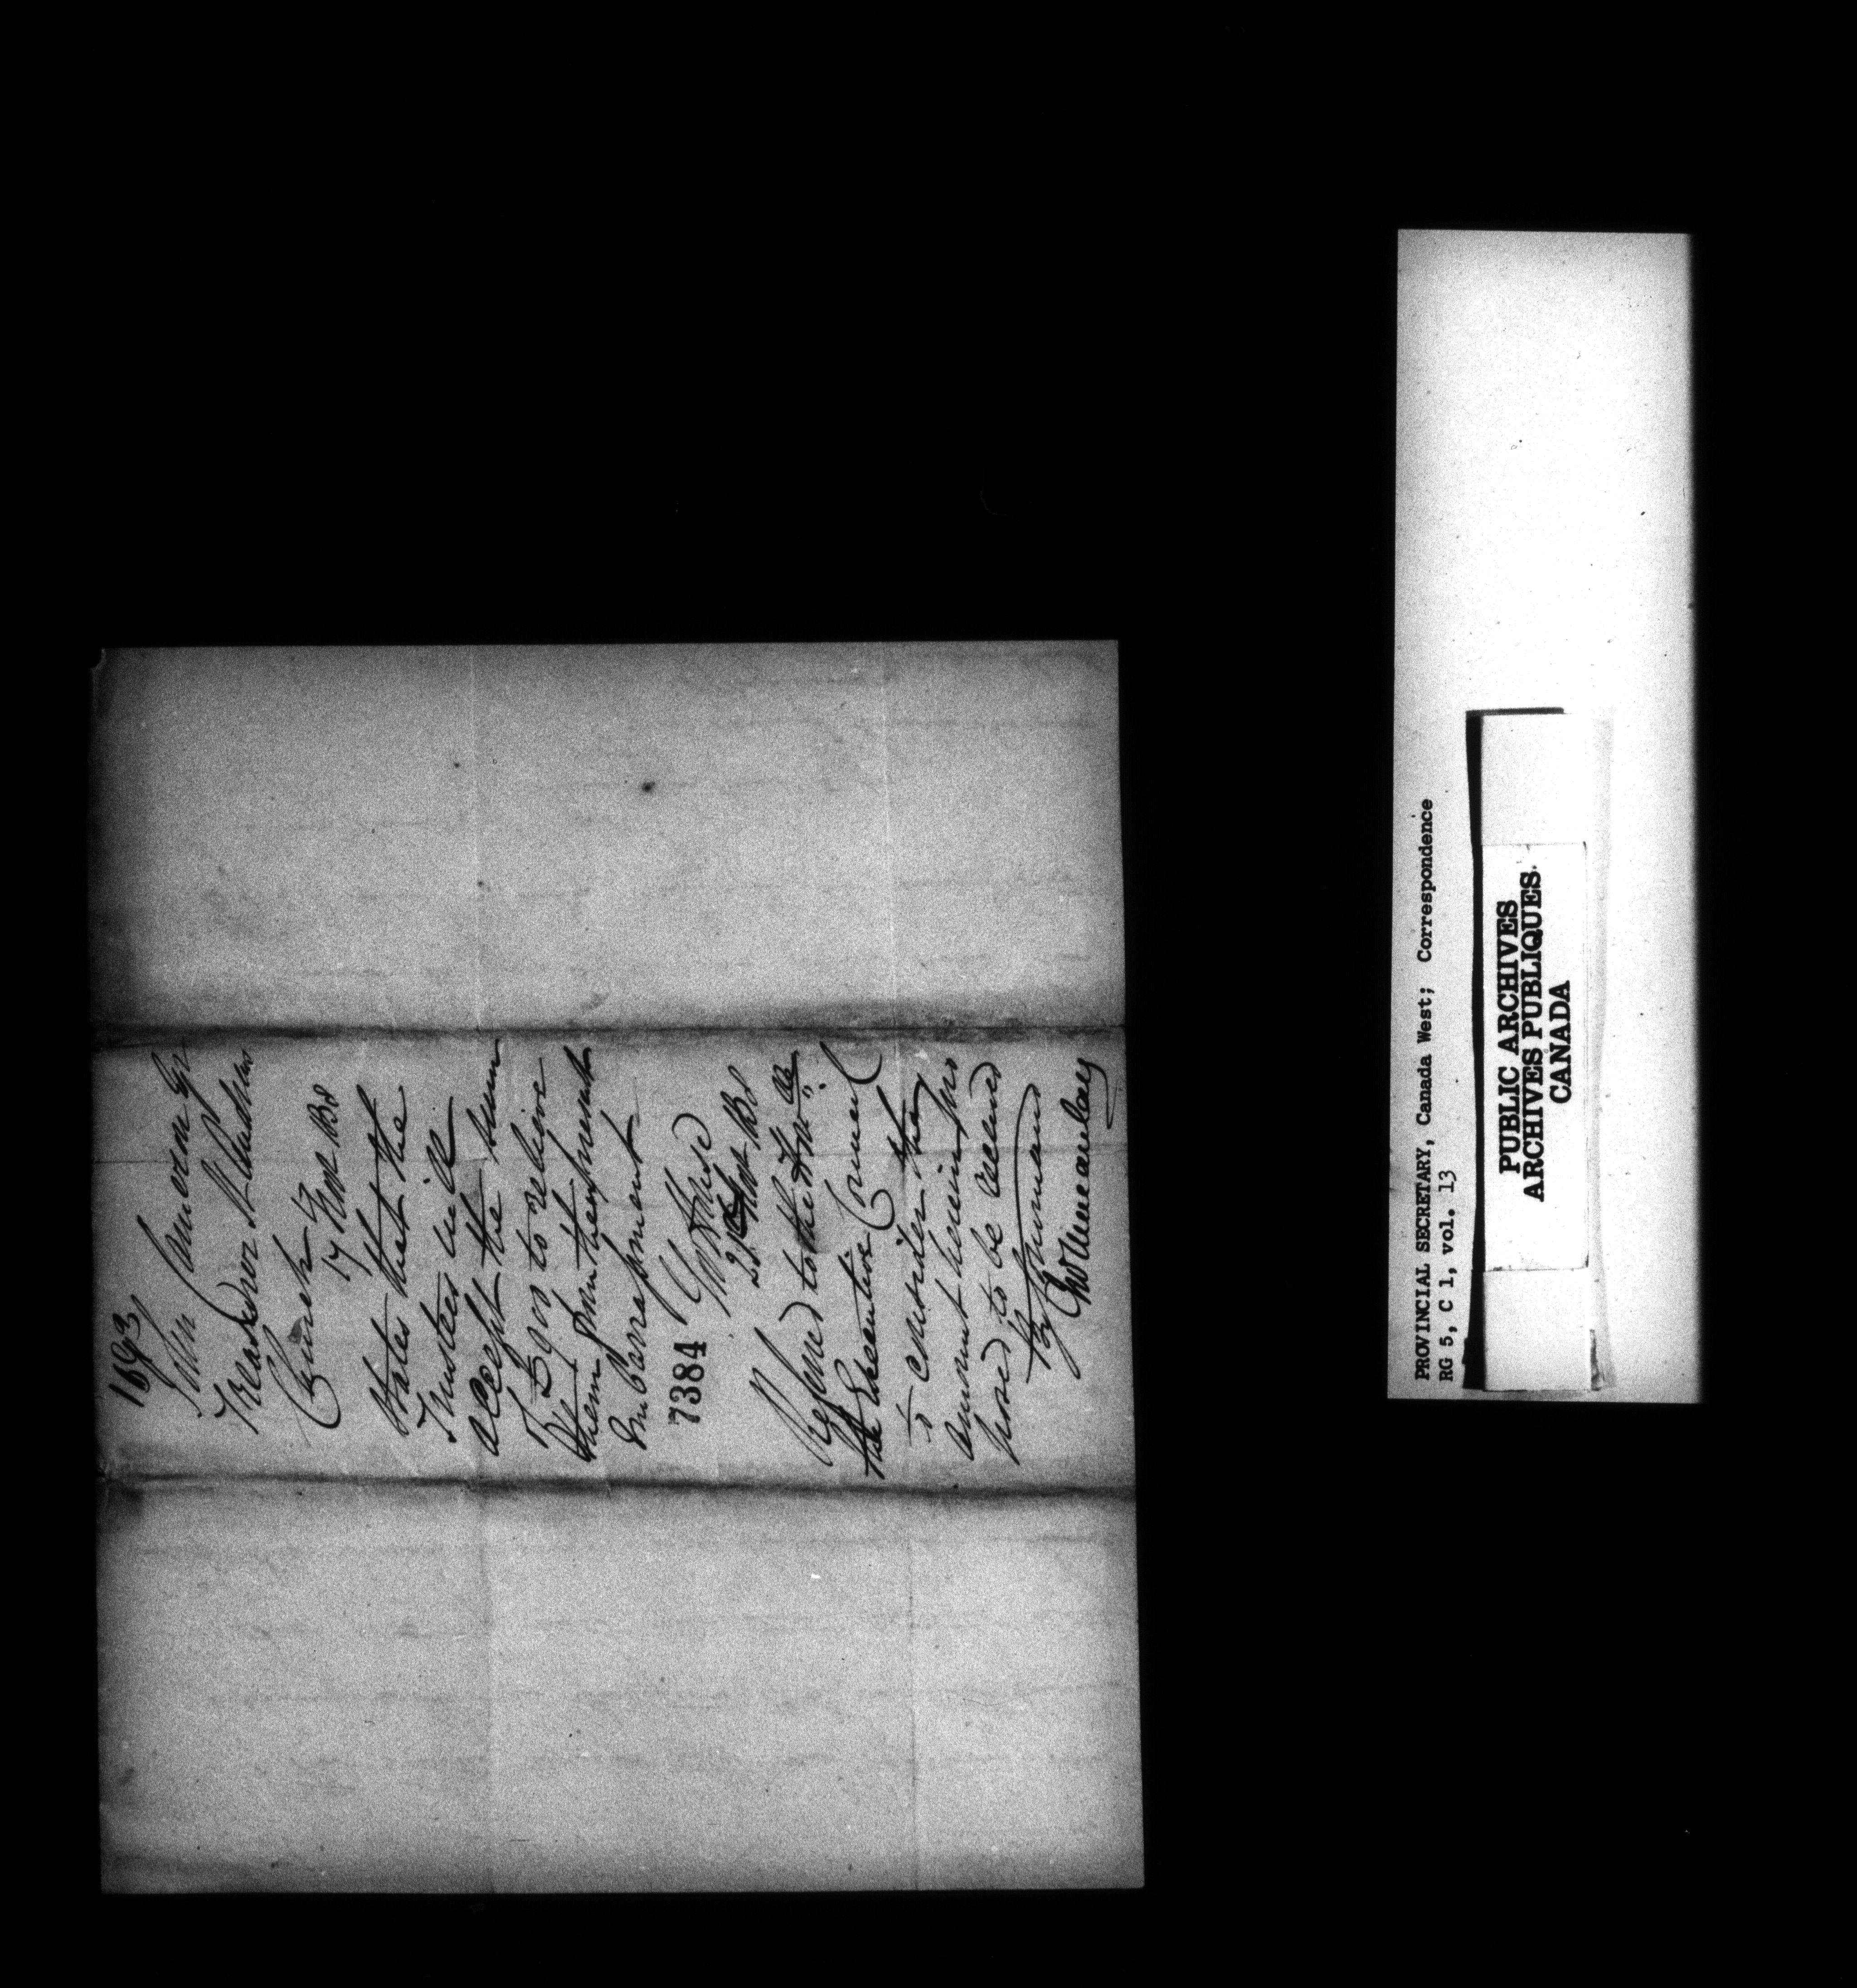 1693
John Cameron Esqr
Treasurer St Andrews
Church
17 Nov 38
States that the
Trustees will
accept the sum
of £900 to relieve
them from their present
Embarrassment
7384
21 Nov 38
Referred to the Honble
the Executive Council
to consider the
amount herein pro
posed to be allowed
By Command
Jno Macaulay
PROVINCIAL SECRETARY, Canada West; Correspondence
RG 5, C 1, vol. 13
PUBLIC ARCHIVES
ARCHIVES PUBLIQUES
CANADA